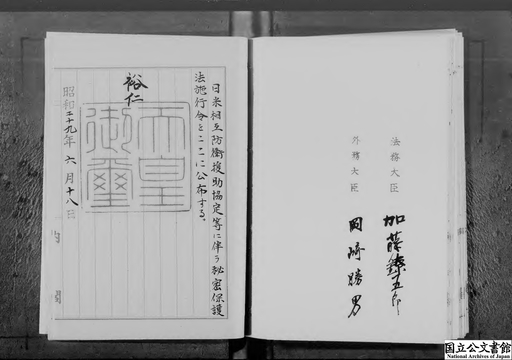 日米相互防衛援助協定等に伴う秘密保護
法施行令をここに公布する。
裕仁
天皇
御璽
昭和二十九年 六月十八日
法務大臣
加藤鐐五郎
外務大臣
岡崎勝男
国立公文書館
National Archives of Japan